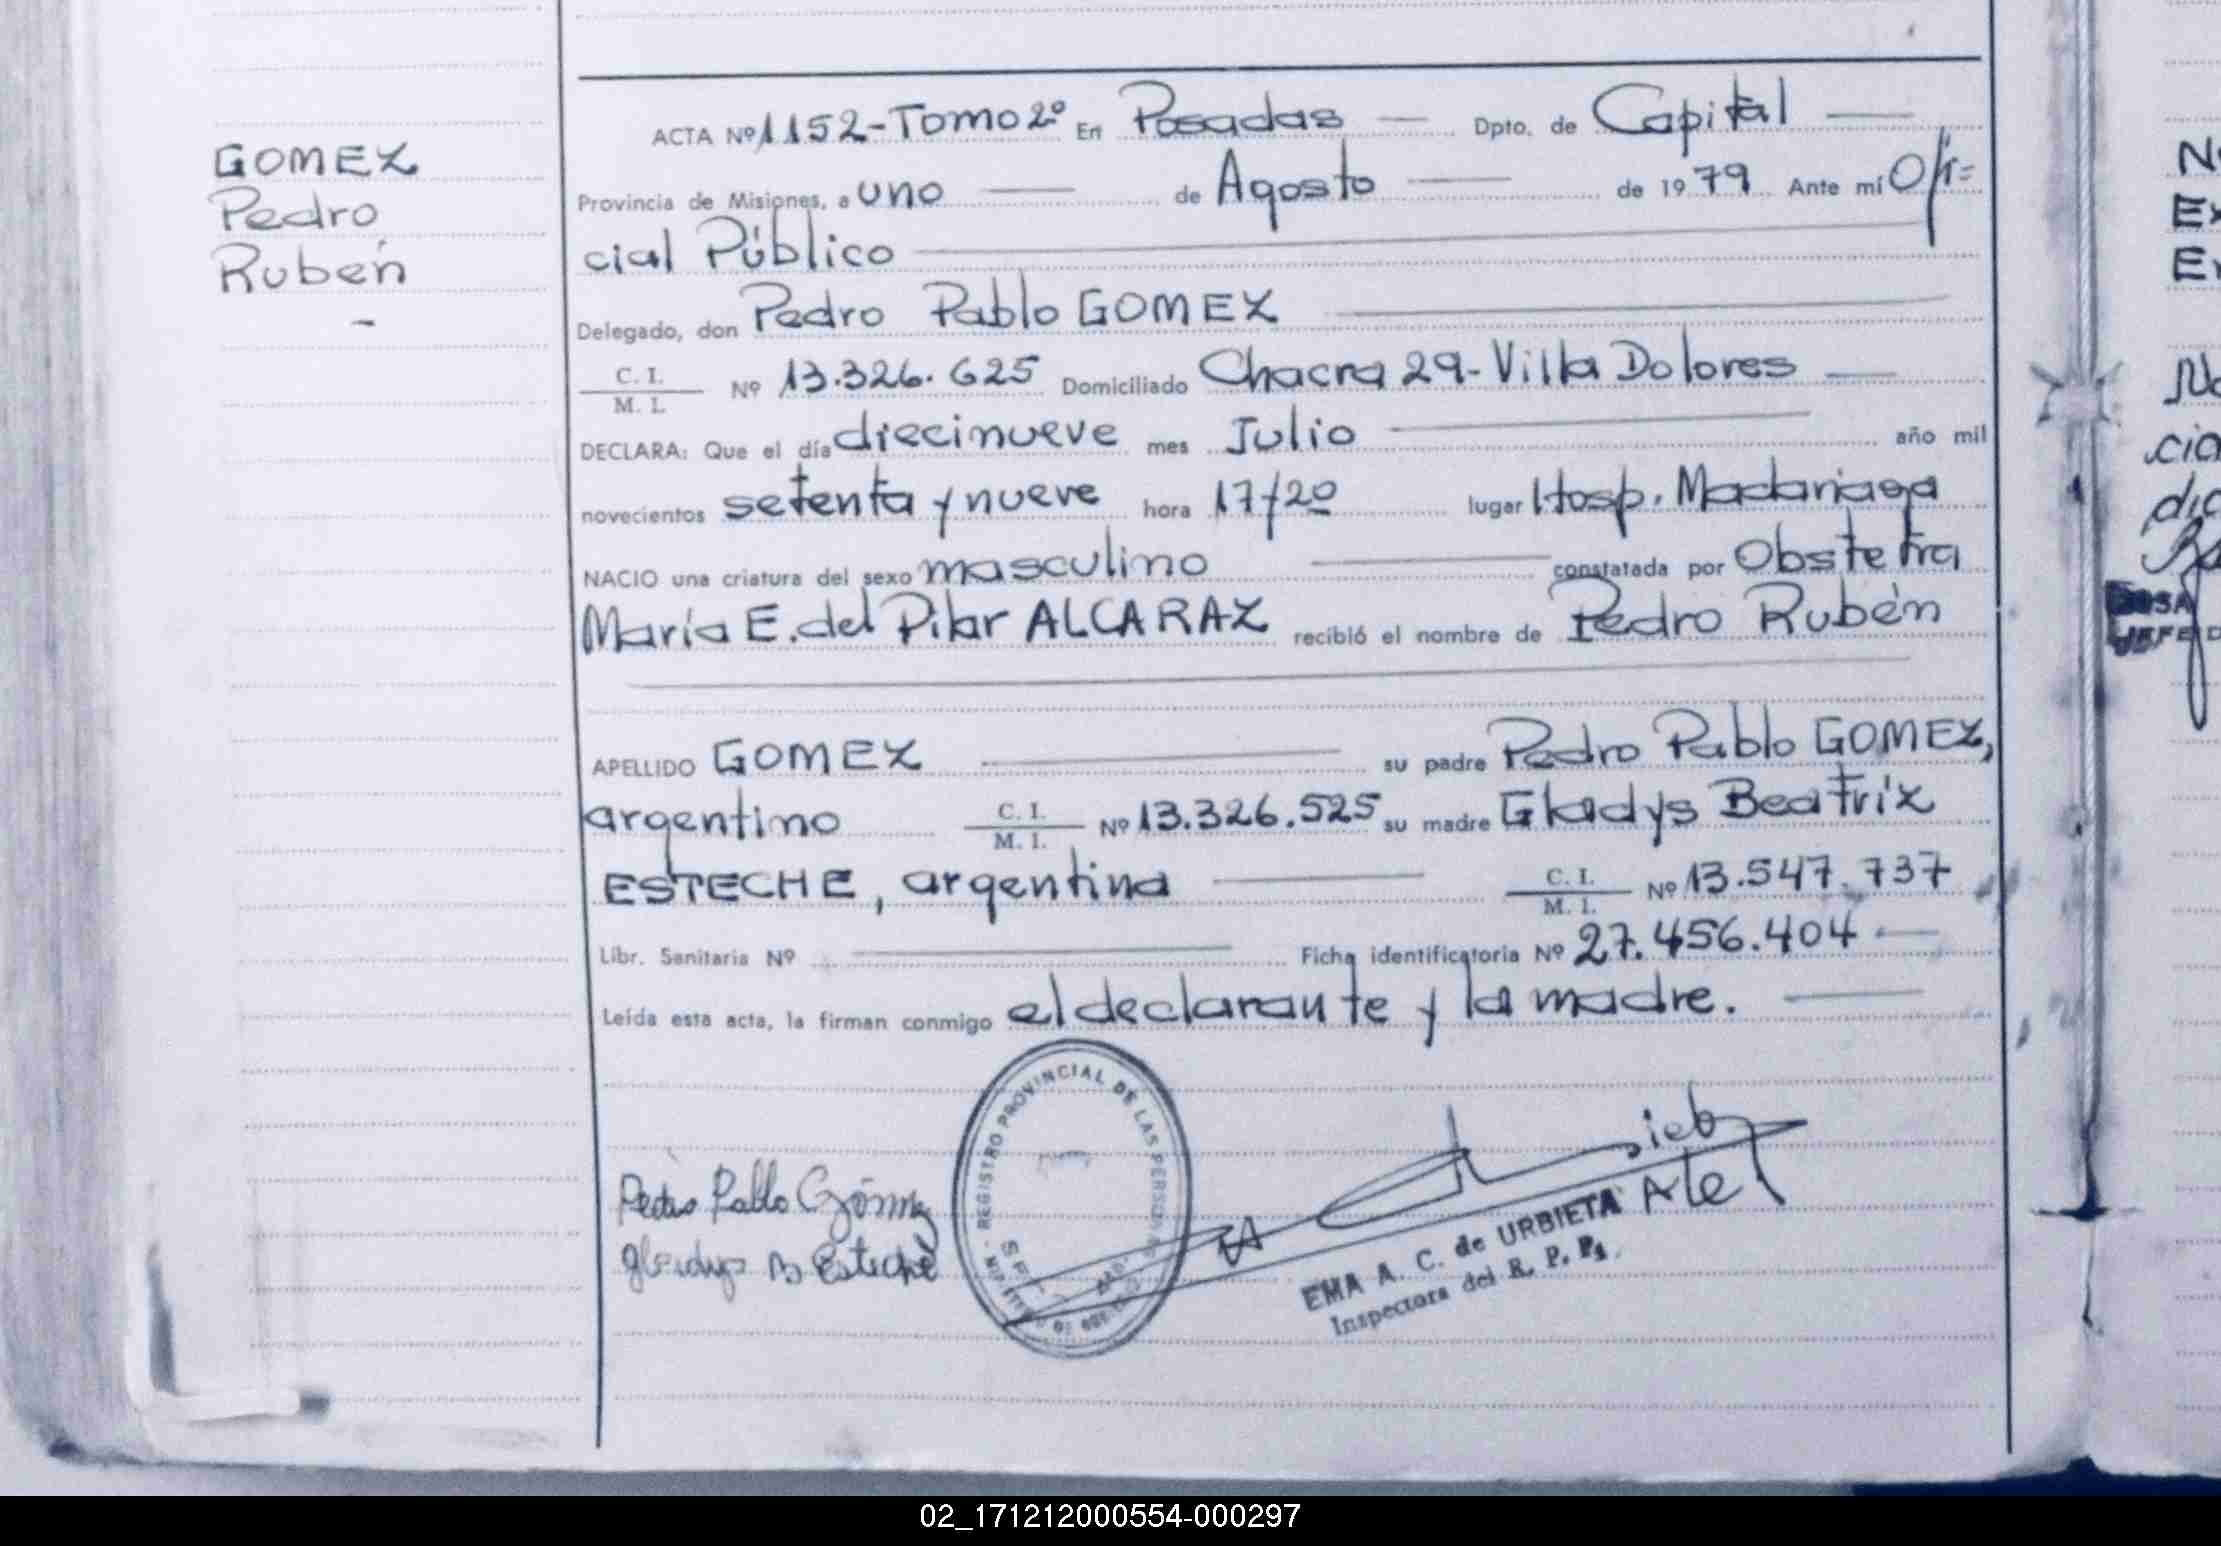 GOMEZ
Pedro
Rubén
ACTA Nº 1152-Tomo 2º En Posadas Dpto. de Capital
Provincia de Misiones, a uno de Agosto de 1979 Ante mí Ofi=
cial Público
Delegado, don Pedro Pablo GOMEZ
C. I. / M. I. Nº 13.326.625 Domiciliado Chacra 29-Villa Dolores
DECLARA: Que el día diecinueve mes Julio año mil
novecientos setenta y nueve hora 17/20 lugar Hosp. Madariaga
NACIO una criatura del sexo masculino constatada por Obstetra
María E. del Pilar ALCARAZ recibió el nombre de Pedro Rubén
APELLIDO GOMEZ su padre Pedro Pablo GOMEZ,
argentino C. I. / M. I. Nº 13.326.525 su madre Gladys Beatríz
ESTECHE, argentina C. I. / M. I. Nº 13.547.737
Libr. Sanitaria Nº Ficha identificatoria Nº 27.456.404
Leída esta acta, la firman conmigo el declarante y la madre.
REGISTRO PROVINCIAL DE LAS PERSONAS
Pedro Pablo Gómez
Gladys B Esteche
EMA A. C. de URBIETA
Inspectora del R. P. P.
02_171212000554-000297